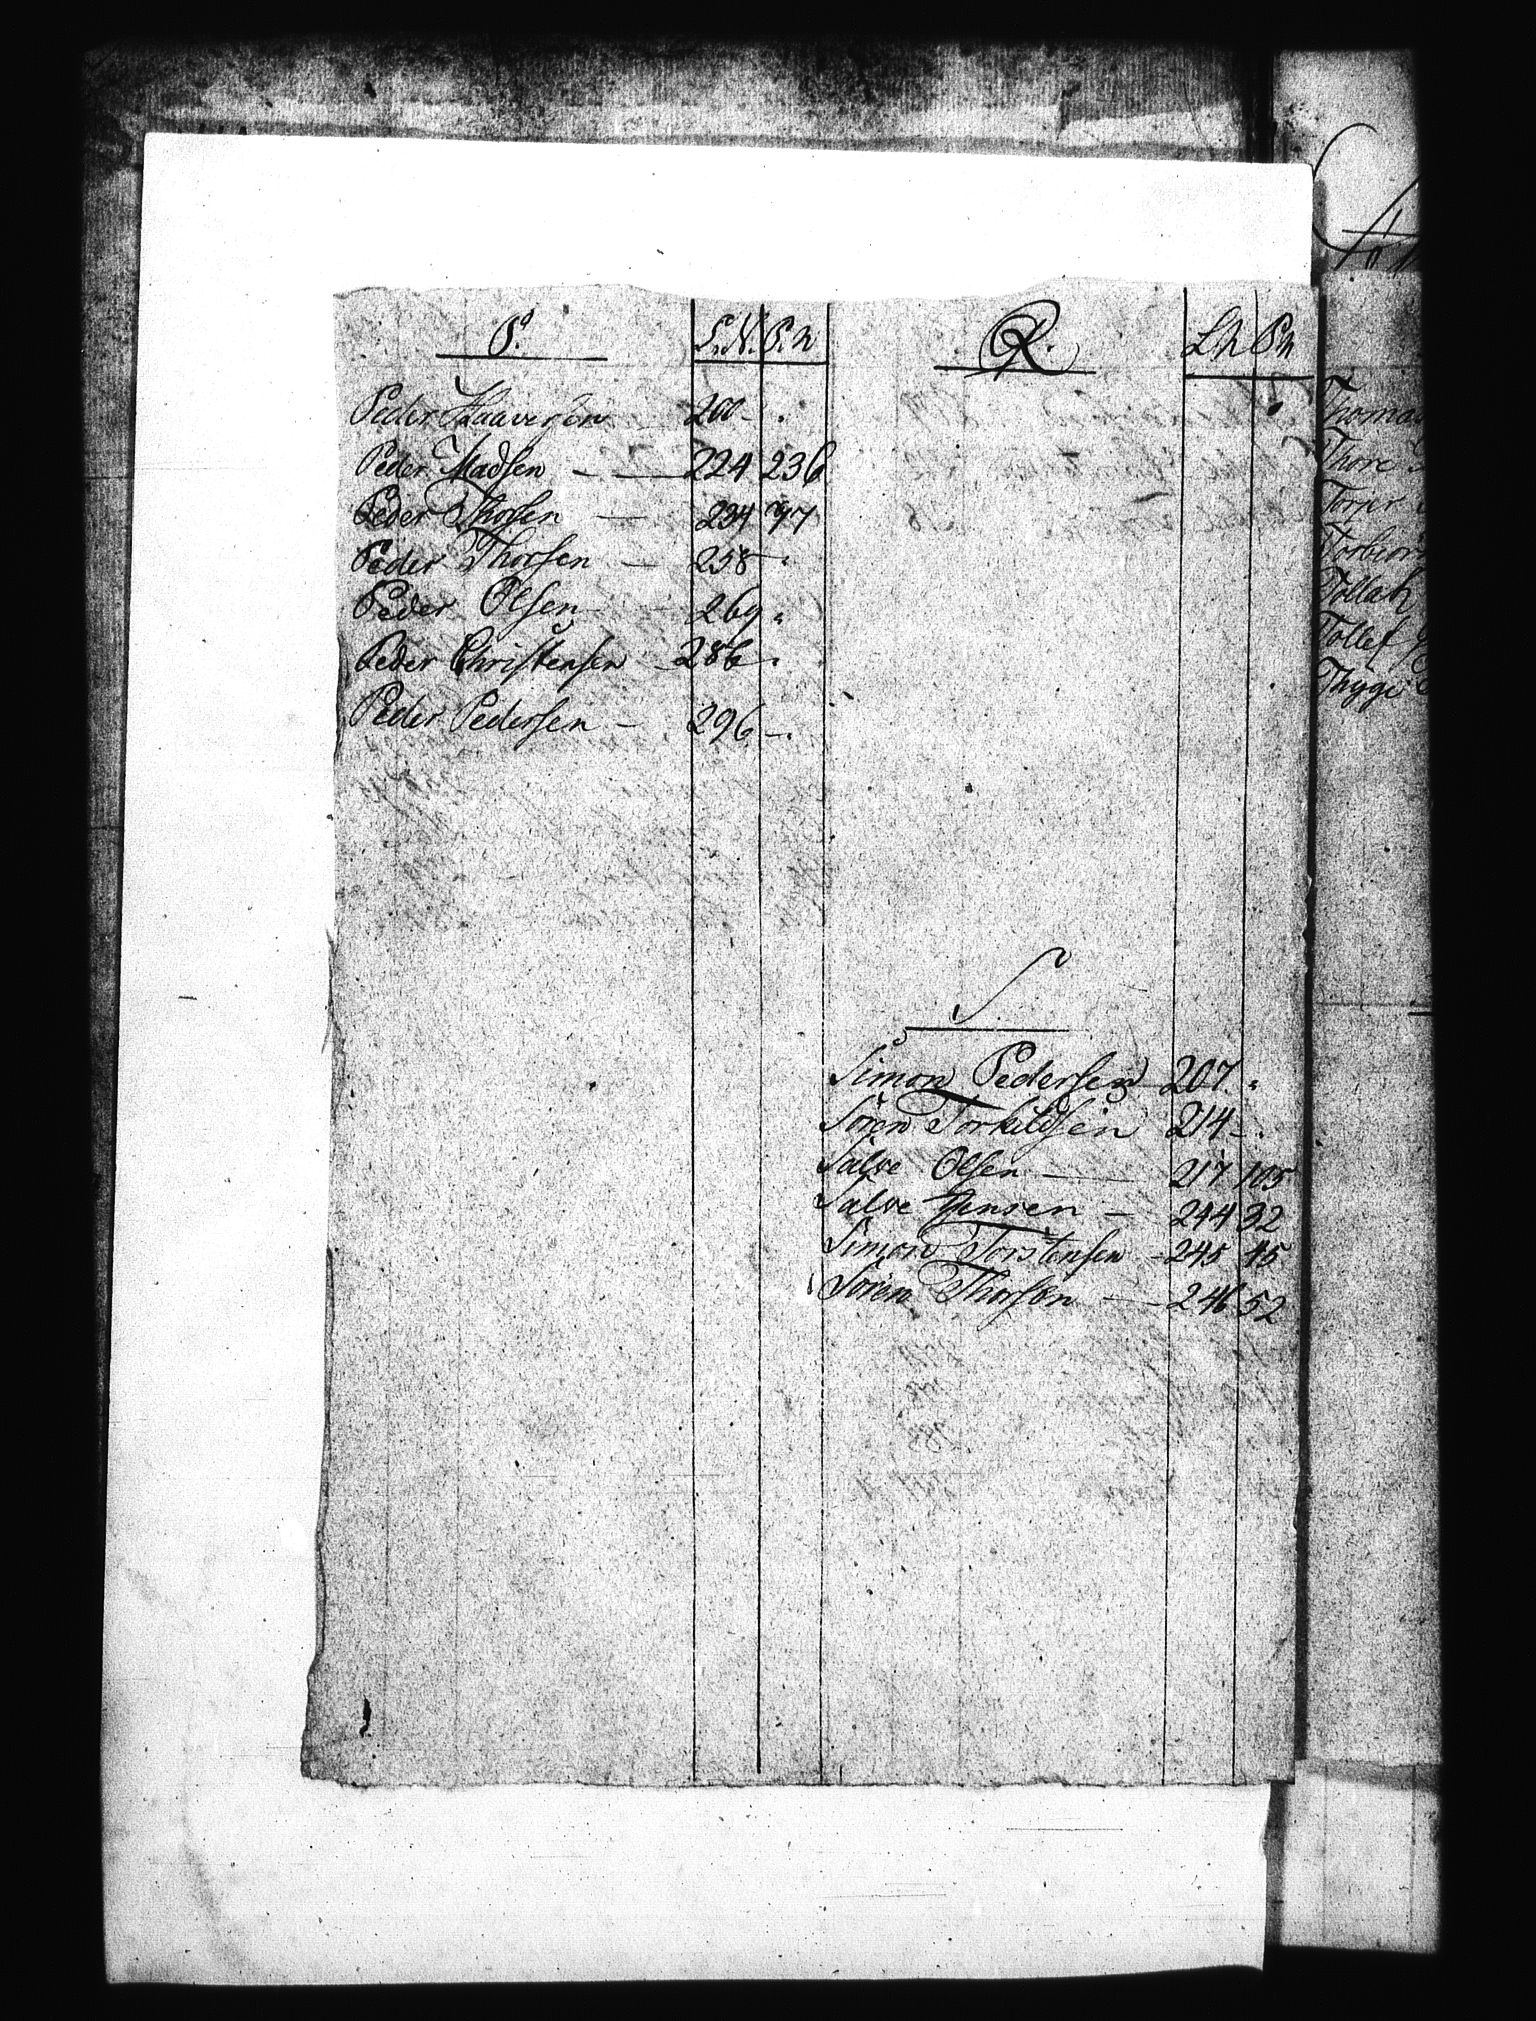 P. L.N. P.n
Peder Haaversen 200 - .
Peder Madsen - — 224 236
Peder Thorsen — 234 97
Peder Thorsen — 258 - .
Peder Olsen 269 .
Peder Christensen - 286 .
Peder Pedersen - 296 - .
R. L.n P.n
S
Simon Pedersen 207 .
Søren Torkildsen 214 - .
Salve Olsen — 217 105
Salve Jensen — 244 32
Simon Torstensen - 245 15
Søren Thorsen — 246 52
Thomas
Thore
Torbiør
Tollak
Tollef
Thyge